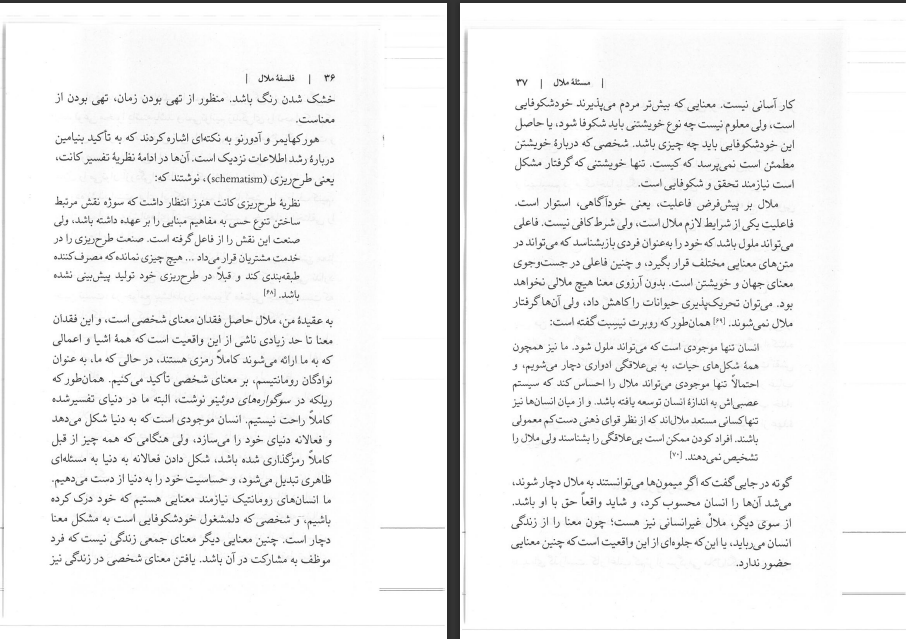 ۳۶ | فلسفهٔ ملال |
خشک شدن رنگ باشد. منظور از تهی بودن زمان، تهی بودن از
معناست.
هورکهایمر و آدورنو به نکته‌ای اشاره کردند که به تأکید بنیامین
دربارهٔ رشد اطلاعات نزدیک است. آن‌ها در ادامهٔ نظریهٔ تفسیر کانت،
یعنی طرح‌ریزی (schematism)، نوشتند که:
نظریهٔ طرح‌ریزی کانت هنوز انتظار داشت که سوژه نقش مرتبط
ساختن تنوع حسی به مفاهیم مبنایی را بر عهده داشته باشد، ولی
صنعت این نقش را از فاعل گرفته است. صنعت طرح‌ریزی را در
خدمت مشتریان قرار می‌داد ... هیچ چیزی نمانده که مصرف‌کننده
طبقه‌بندی کند و قبلاً در طرح‌ریزی خود تولید پیش‌بینی نشده
باشد. [۶۸]
به عقیدهٔ من، ملال حاصل فقدان معنای شخصی است، و این فقدان
معنا تا حد زیادی ناشی از این واقعیت است که همهٔ اشیا و اعمالی
که به ما ارائه می‌شوند کاملاً رمزی هستند، در حالی که ما، به عنوان
نوادگان رومانتیسم، بر معنای شخصی تأکید می‌کنیم. همان‌طور که
ریلکه در سوگواره‌های دوئینو نوشت، البته ما در دنیای تفسیرشده
کاملاً راحت نیستیم. انسان موجودی است که به دنیا شکل می‌دهد
و فعالانه دنیای خود را می‌سازد، ولی هنگامی که همه چیز از قبل
کاملاً رمزگذاری شده باشد، شکل دادن فعالانه به دنیا به مسئله‌ای
ظاهری تبدیل می‌شود، و حساسیت خود را به دنیا از دست می‌دهیم.
ما انسان‌های رومانتیک نیازمند معنایی هستیم که خود درک کرده
باشیم، و شخصی که دلمشغول خودشکوفایی است به مشکل معنا
دچار است. چنین معنایی دیگر معنای جمعی زندگی نیست که فرد
موظف به مشارکت در آن باشد. یافتن معنای شخصی در زندگی نیز
| مسئلهٔ ملال | ۳۷
کار آسانی نیست. معنایی که بیش‌تر مردم می‌پذیرند خودشکوفایی
است، ولی معلوم نیست چه نوع خویشتنی باید شکوفا شود، یا حاصل
این خودشکوفایی باید چه چیزی باشد. شخصی که دربارهٔ خویشتن
مطمئن است نمی‌پرسد که کیست. تنها خویشتنی که گرفتار مشکل
است نیازمند تحقق و شکوفایی است.
ملال بر پیش‌فرض فاعلیت، یعنی خودآگاهی، استوار است.
فاعلیت یکی از شرایط لازم ملال است، ولی شرط کافی نیست. فاعلی
می‌تواند ملول باشد که خود را به‌عنوان فردی بازبشناسد که می‌تواند در
متن‌های معنایی مختلف قرار بگیرد، و چنین فاعلی در جست‌وجوی
معنای جهان و خویشتن است. بدون آرزوی معنا هیچ ملالی نخواهد
بود. می‌توان تحریک‌پذیری حیوانات را کاهش داد، ولی آن‌ها گرفتار
ملال نمی‌شوند. [۶۹] همان‌طور که روبرت نیسبت گفته است:
انسان تنها موجودی است که می‌تواند ملول شود. ما نیز همچون
همهٔ شکل‌های حیات، به بی‌علاقگی ادواری دچار می‌شویم، و
احتمالاً تنها موجودی می‌تواند ملال را احساس کند که سیستم
عصبی‌اش به اندازهٔ انسان توسعه یافته باشد. و از میان انسان‌ها نیز
تنها کسانی مستعد ملال‌اند که از نظر قوای ذهنی دست‌کم معمولی
باشند. افراد کودن ممکن است بی‌علاقگی را بشناسند ولی ملال را
تشخیص نمی‌دهند. [۷۰]
گوته در جایی گفت که اگر میمون‌ها می‌توانستند به ملال دچار شوند،
می‌شد آن‌ها را انسان محسوب کرد، و شاید واقعاً حق با او باشد.
از سوی دیگر، ملالْ غیرانسانی نیز هست؛ چون معنا را از زندگی
انسان می‌رباید، یا این‌که جلوه‌ای از این واقعیت است که چنین معنایی
حضور ندارد.